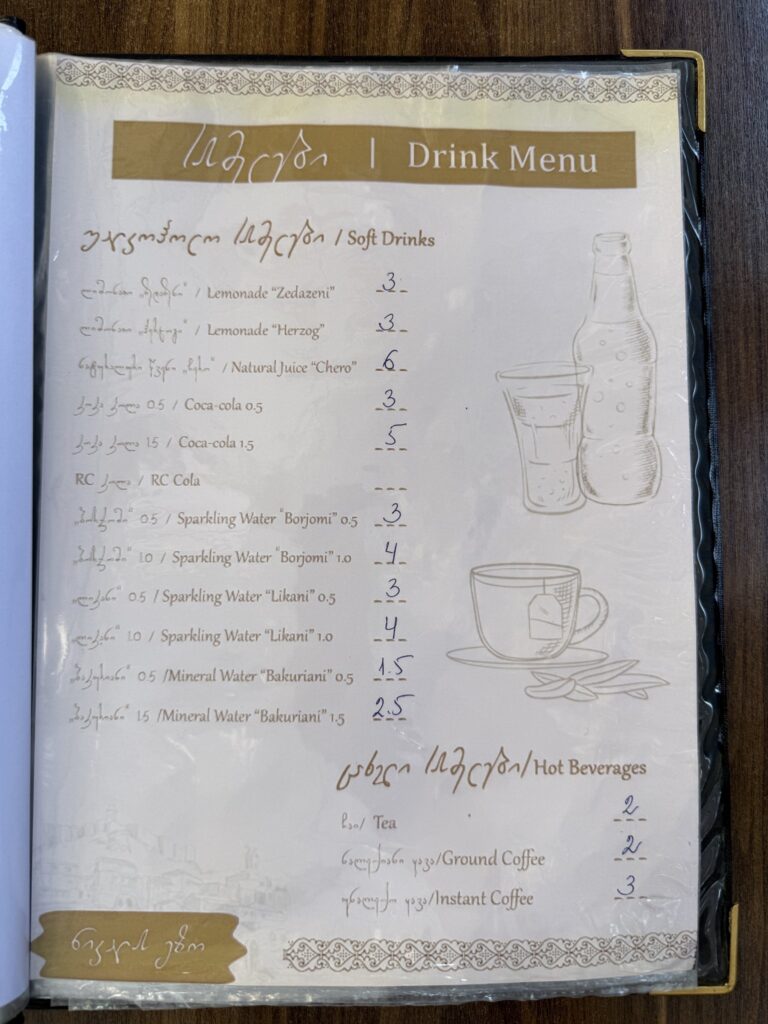 სასმელები | Drink Menu
უალკოჰოლო სასმელები / Soft Drinks
ლიმონათი „ზედაზენი“ / Lemonade “Zedazeni” 3
ლიმონათი „ჰერცოგი“ / Lemonade “Herzog” 3
ნატურალური წვენი „ჩერო“ / Natural Juice “Chero” 6
კოკა კოლა 0.5 / Coca-cola 0.5 3
კოკა კოლა 1.5 / Coca-cola 1.5 5
RC კოლა / RC Cola
„ბორჯომი“ 0.5 / Sparkling Water “Borjomi” 0.5 3
„ბორჯომი“ 1.0 / Sparkling Water “Borjomi” 1.0 4
„ლიკანი“ 0.5 / Sparkling Water “Likani” 0.5 3
„ლიკანი“ 1.0 / Sparkling Water “Likani” 1.0 4
„ბაკურიანი“ 0.5 /Mineral Water “Bakuriani” 0.5 1.5
„ბაკურიანი“ 1.5 /Mineral Water “Bakuriani” 1.5 2.5
ცხელი სასმელები/Hot Beverages
ჩაი/ Tea 2
ნალექიანი ყავა/Ground Coffee 2
უნალექო ყავა/Instant Coffee 3
ნიკალას ეზო